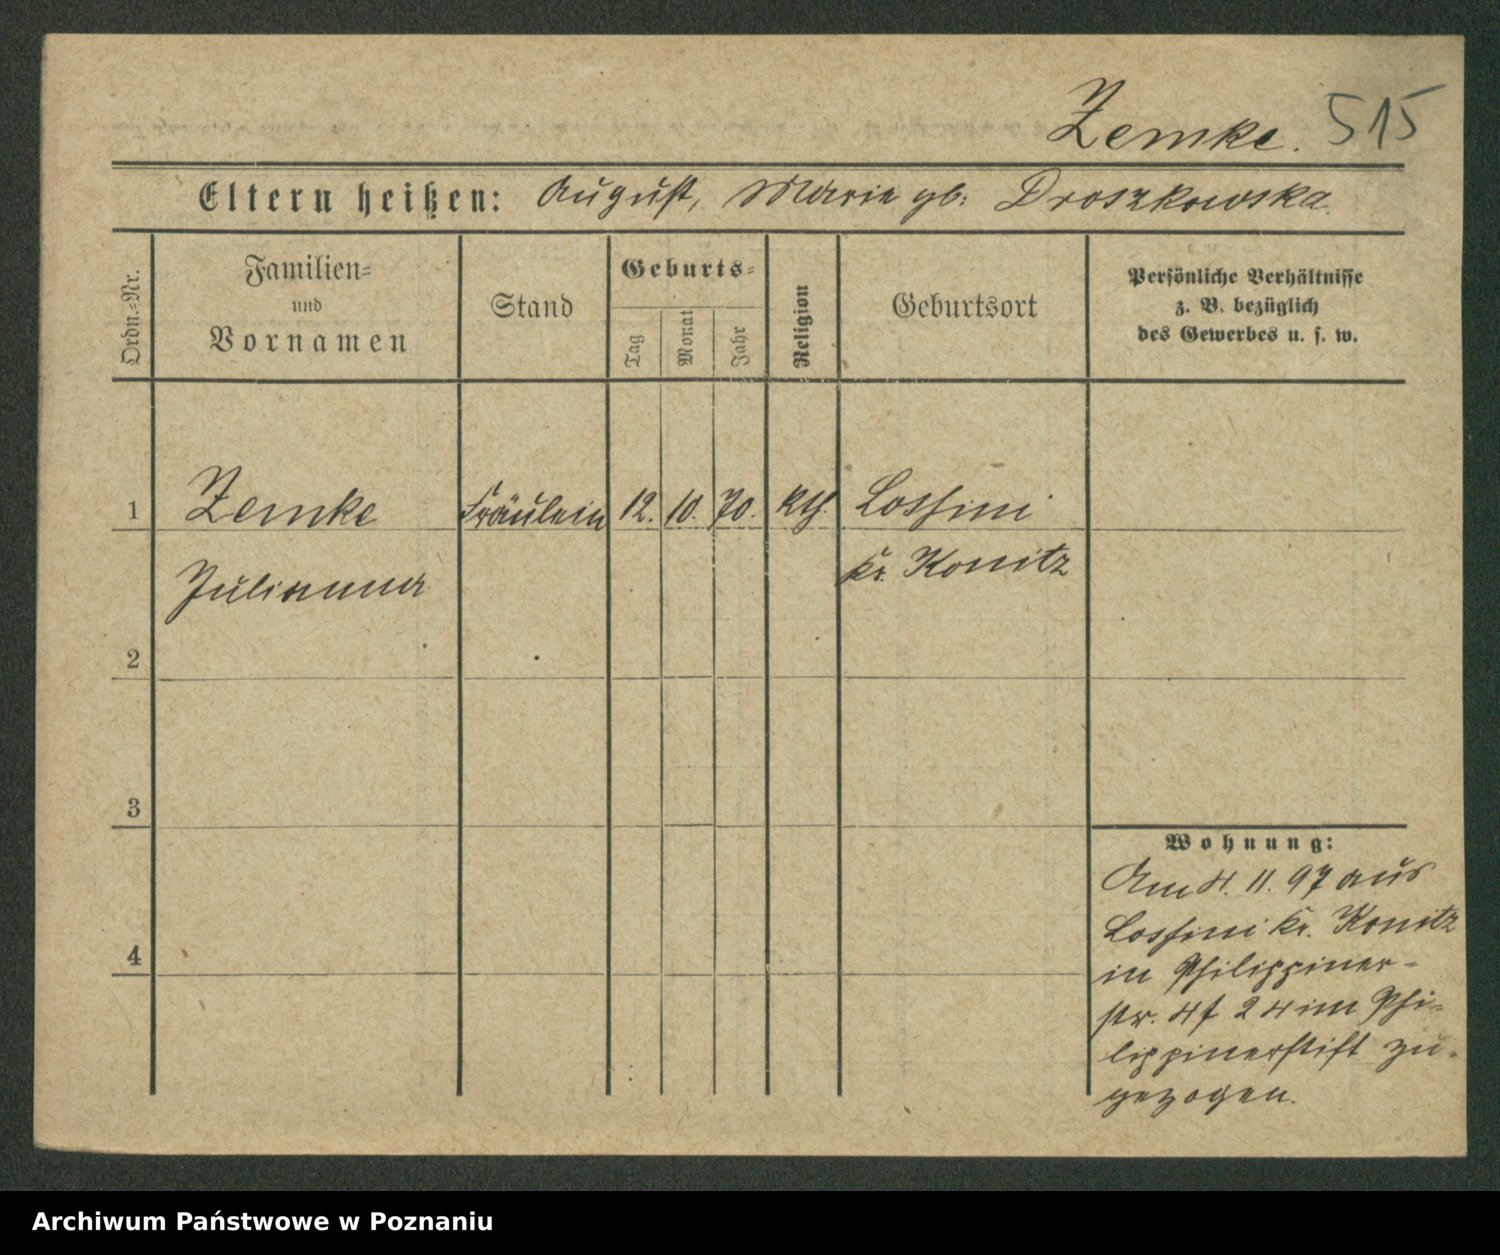 Zemke. 515
Eltern heißen: August, Marie gb. Droszkowska.
Ordn.-Nr.
Familien-
und
Vornamen
Stand
Geburts-
Tag
Monat
Jahr
Religion
Geburtsort
Persönliche Verhältnisse
z. B. bezüglich
des Gewerbes u. s. w.
1 Zemke Fräulein 12. 10. 70. kth. Lossini
Kr. Konitz
Julianna
2
3
4
Wohnung:
Am 4. 11. 97 aus
Lossini Kr. Konitz
in Philippiner-
str. 4 24 im Phi-
lippinerstift zu-
gezogen.
Archiwum Państwowe w Poznaniu